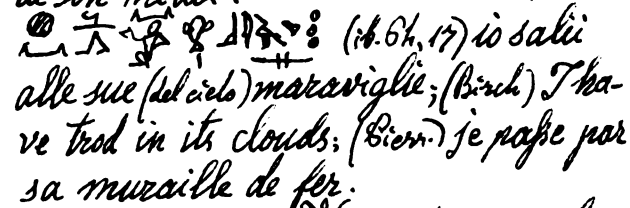 (ib. 64, 17) io salii
alle sue (del cielo) maraviglie; (Birch) I ha-
ve trod in its clouds; (Pierr.) je passe par
sa muraille de fer.